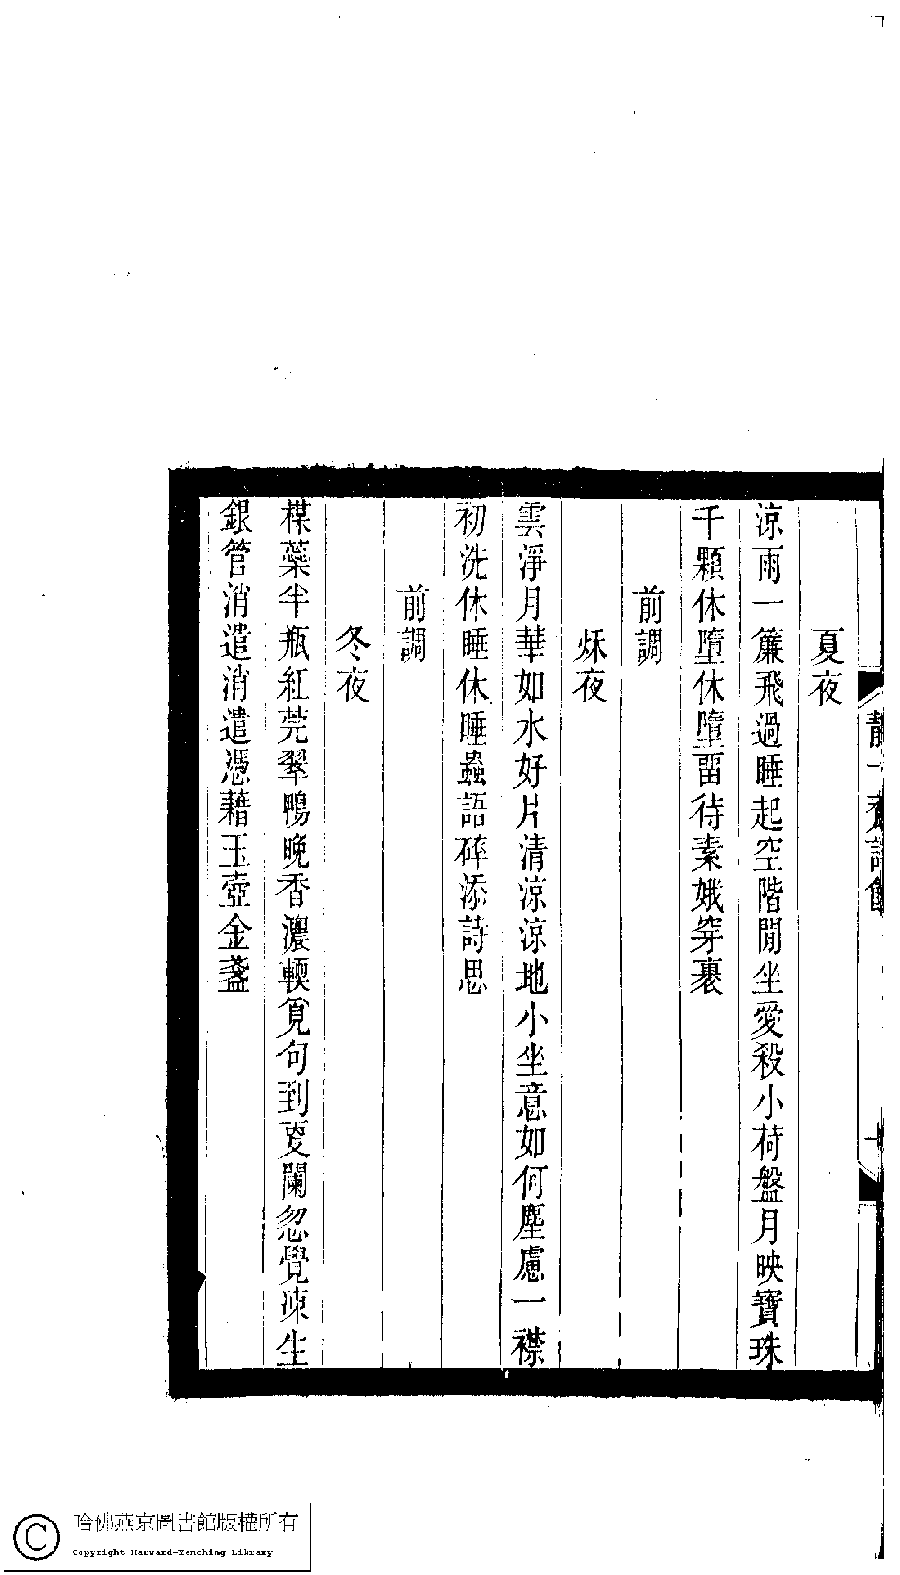 夏夜
涼雨一簾飛過睡起空階閒坐愛殺小荷盤月映寶珠
千顆休墮休墮畱待素娥穿裹
前調
秌夜
雲淨月華如水好片清涼涼地小坐意如何塵慮一襟
初洗休睡休睡蟲語碎添詩思
前調
冬夜
楳蘂半瓶紅莞翠鴨晚香濃輭覓句到夏闌忽覺凍生
銀管消遣消遣憑藉玉壺金盞
哈佛燕京圖書館版權所有
Copyright Harvard-Yenching Library